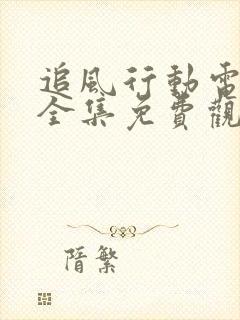 追風行動電
全集免費觀
隋繁